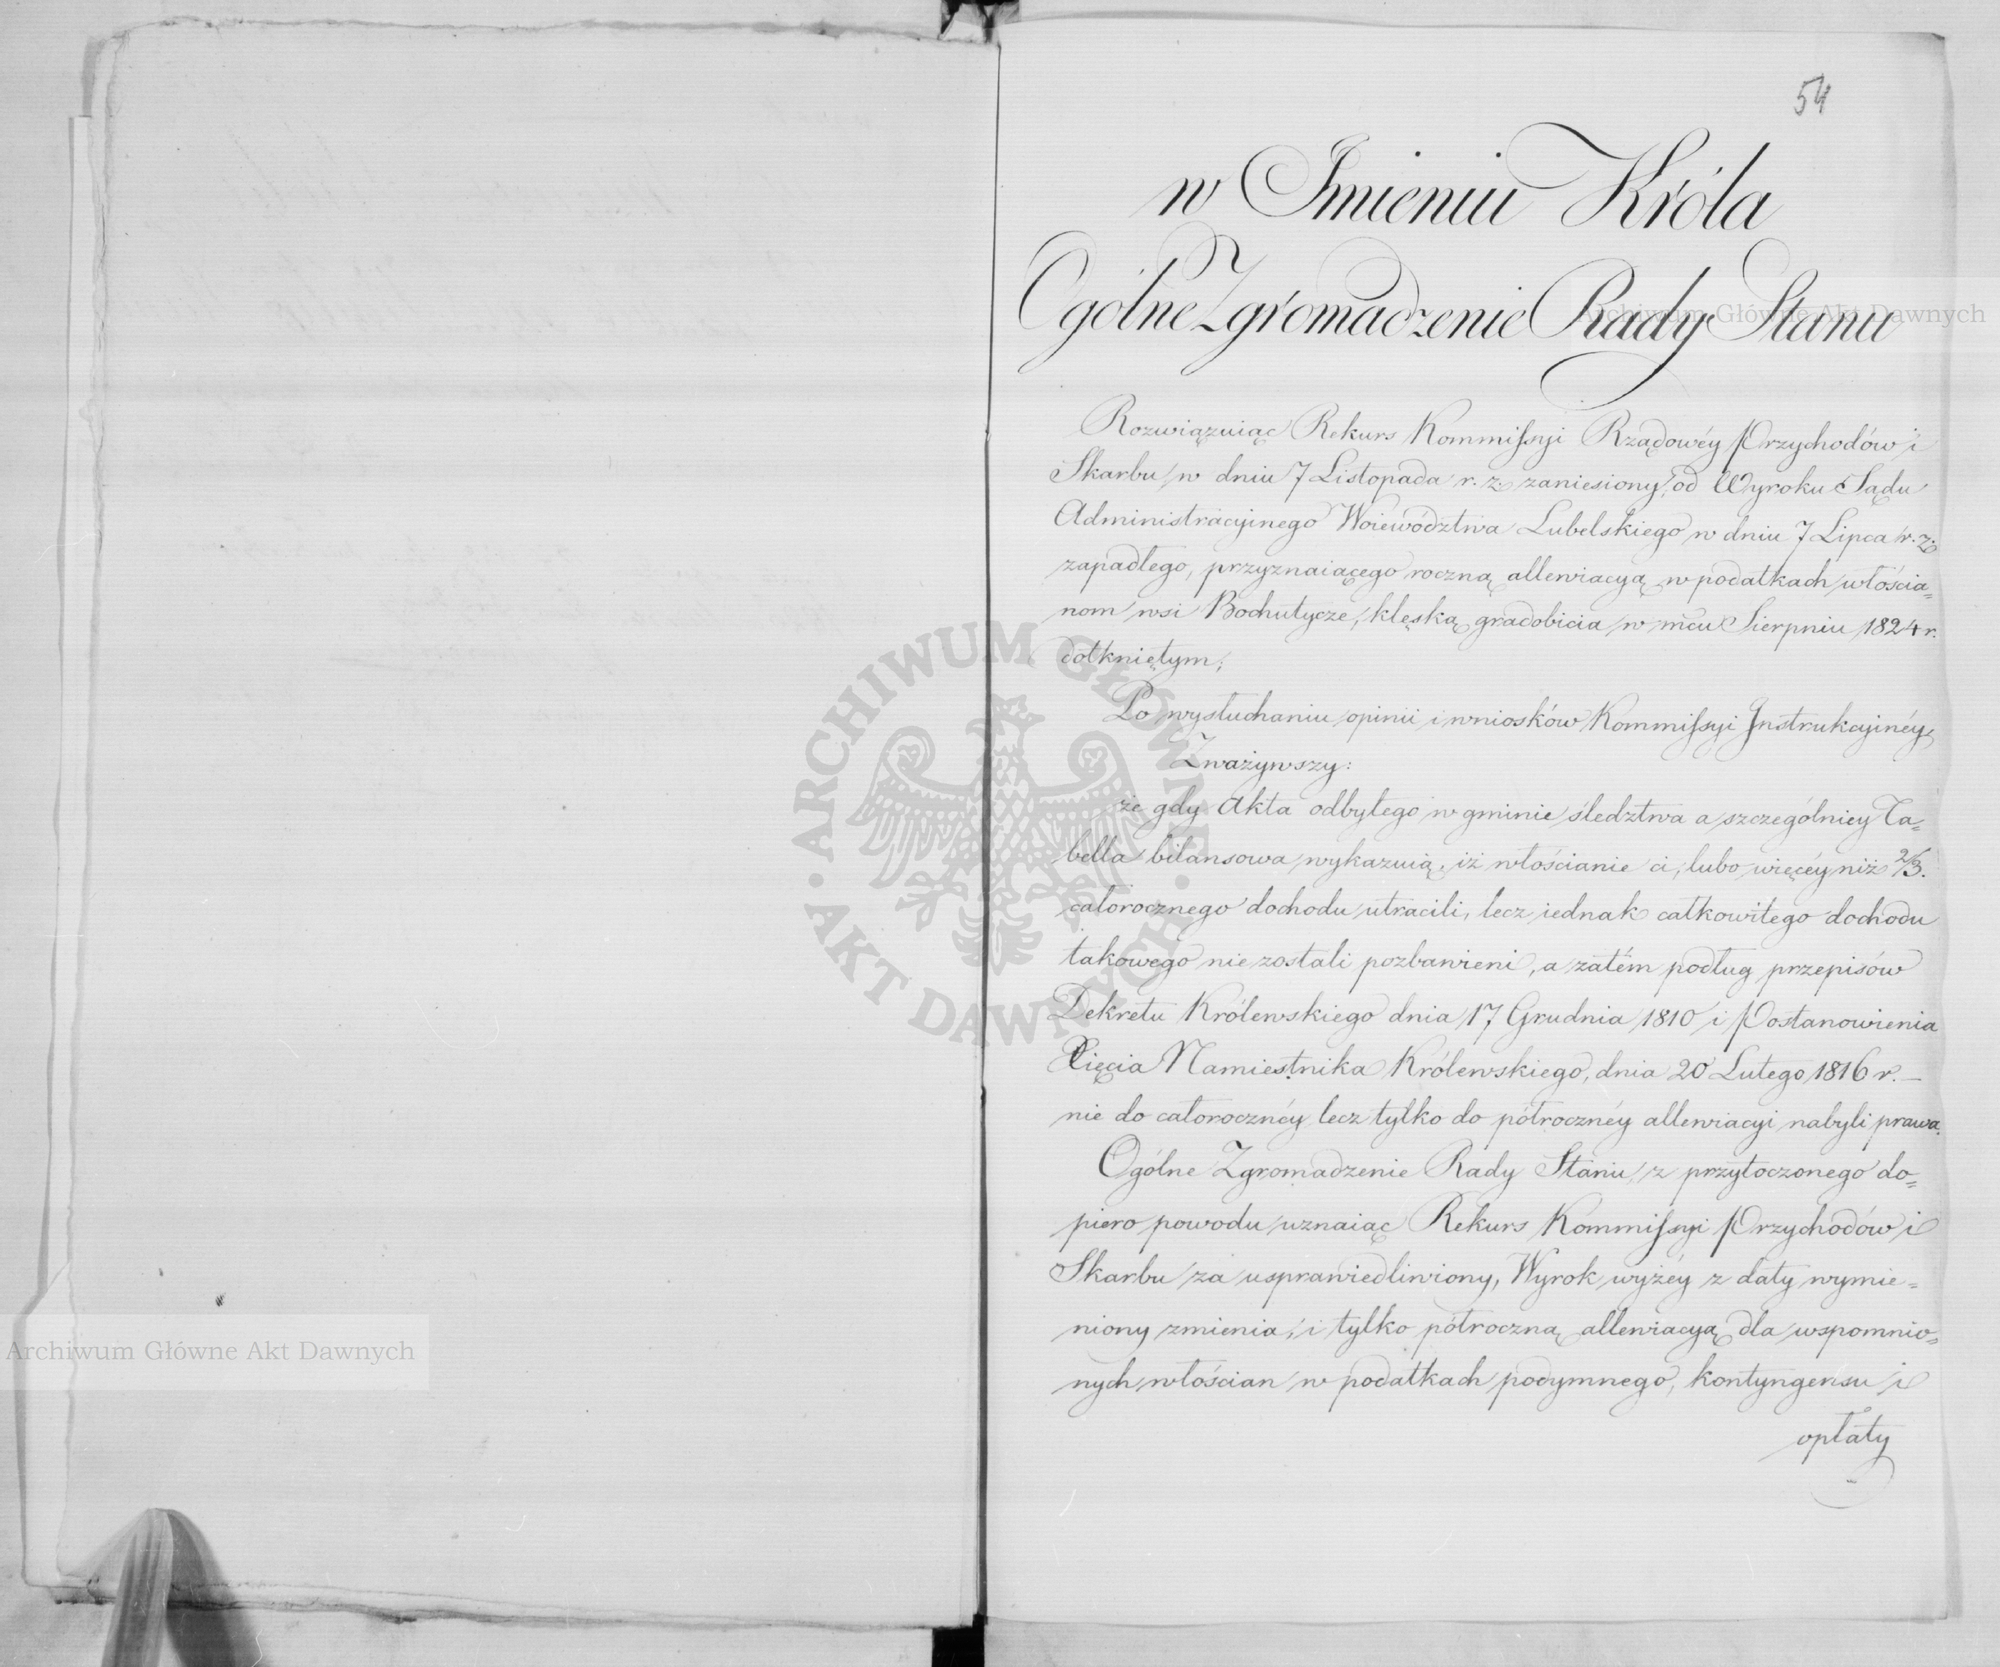 54
w Imieniu Króla
Ogólne Zgromadzenie Rady Stanu
Rozwiązuiąc Rekurs Kommissyi Rządowéy Przychodów i
Skarbu w dniu 7 Listopada r. z. zaniesiony, od Wyroku Sądu
Administracyinego Woiewództwa Lubelskiego w dniu 7 Lipca r. z.
zapadłego, przyznaiącego roczną allewiacyą w podatkach włościa=
nom wsi Bochutycze, klęską gradobicia w mcu Sierpniu 1824 r.
dotkniętym;
Po wysłuchaniu opinii i wniosków Kommissyi Instrukcyinéy,
Zważywszy:
że gdy Akta odbytego w gminie śledztwa a szczególniey Ta=
bella bilansowa wykazuią, iż włościanie ci, lubo więcéy niż 2/3.
całorocznego dochodu utracili, lecz iednak całkowitego dochodu
takowego nie zostali pozbawieni, a zatém podług przepisów
Dekretu Królewskiego dnia 17 Grudnia 1810 i Postanowienia
Xięcia Namiestnika Królewskiego, dnia 20 Lutego 1816 r. –
nie do całorocznéy lecz tylko do półrocznéy allewiacyi nabyli prawa.
Ogólne Zgromadzenie Rady Stanu, z przytoczonego do=
piero powodu uznaiąc Rekurs Kommissyi Przychodów i
Skarbu za usprawiedliwiony, Wyrok wyżéy z daty wymie=
niony zmienia, i tylko półroczną allewiacyą dla wspomnio=
nych włościan w podatkach podymnego, kontyngensu i
opłaty
Archiwum Główne Akt Dawnych
ARCHIWUM GŁÓWNE · AKT DAWNYCH ·
Archiwum Główne Akt Dawnych